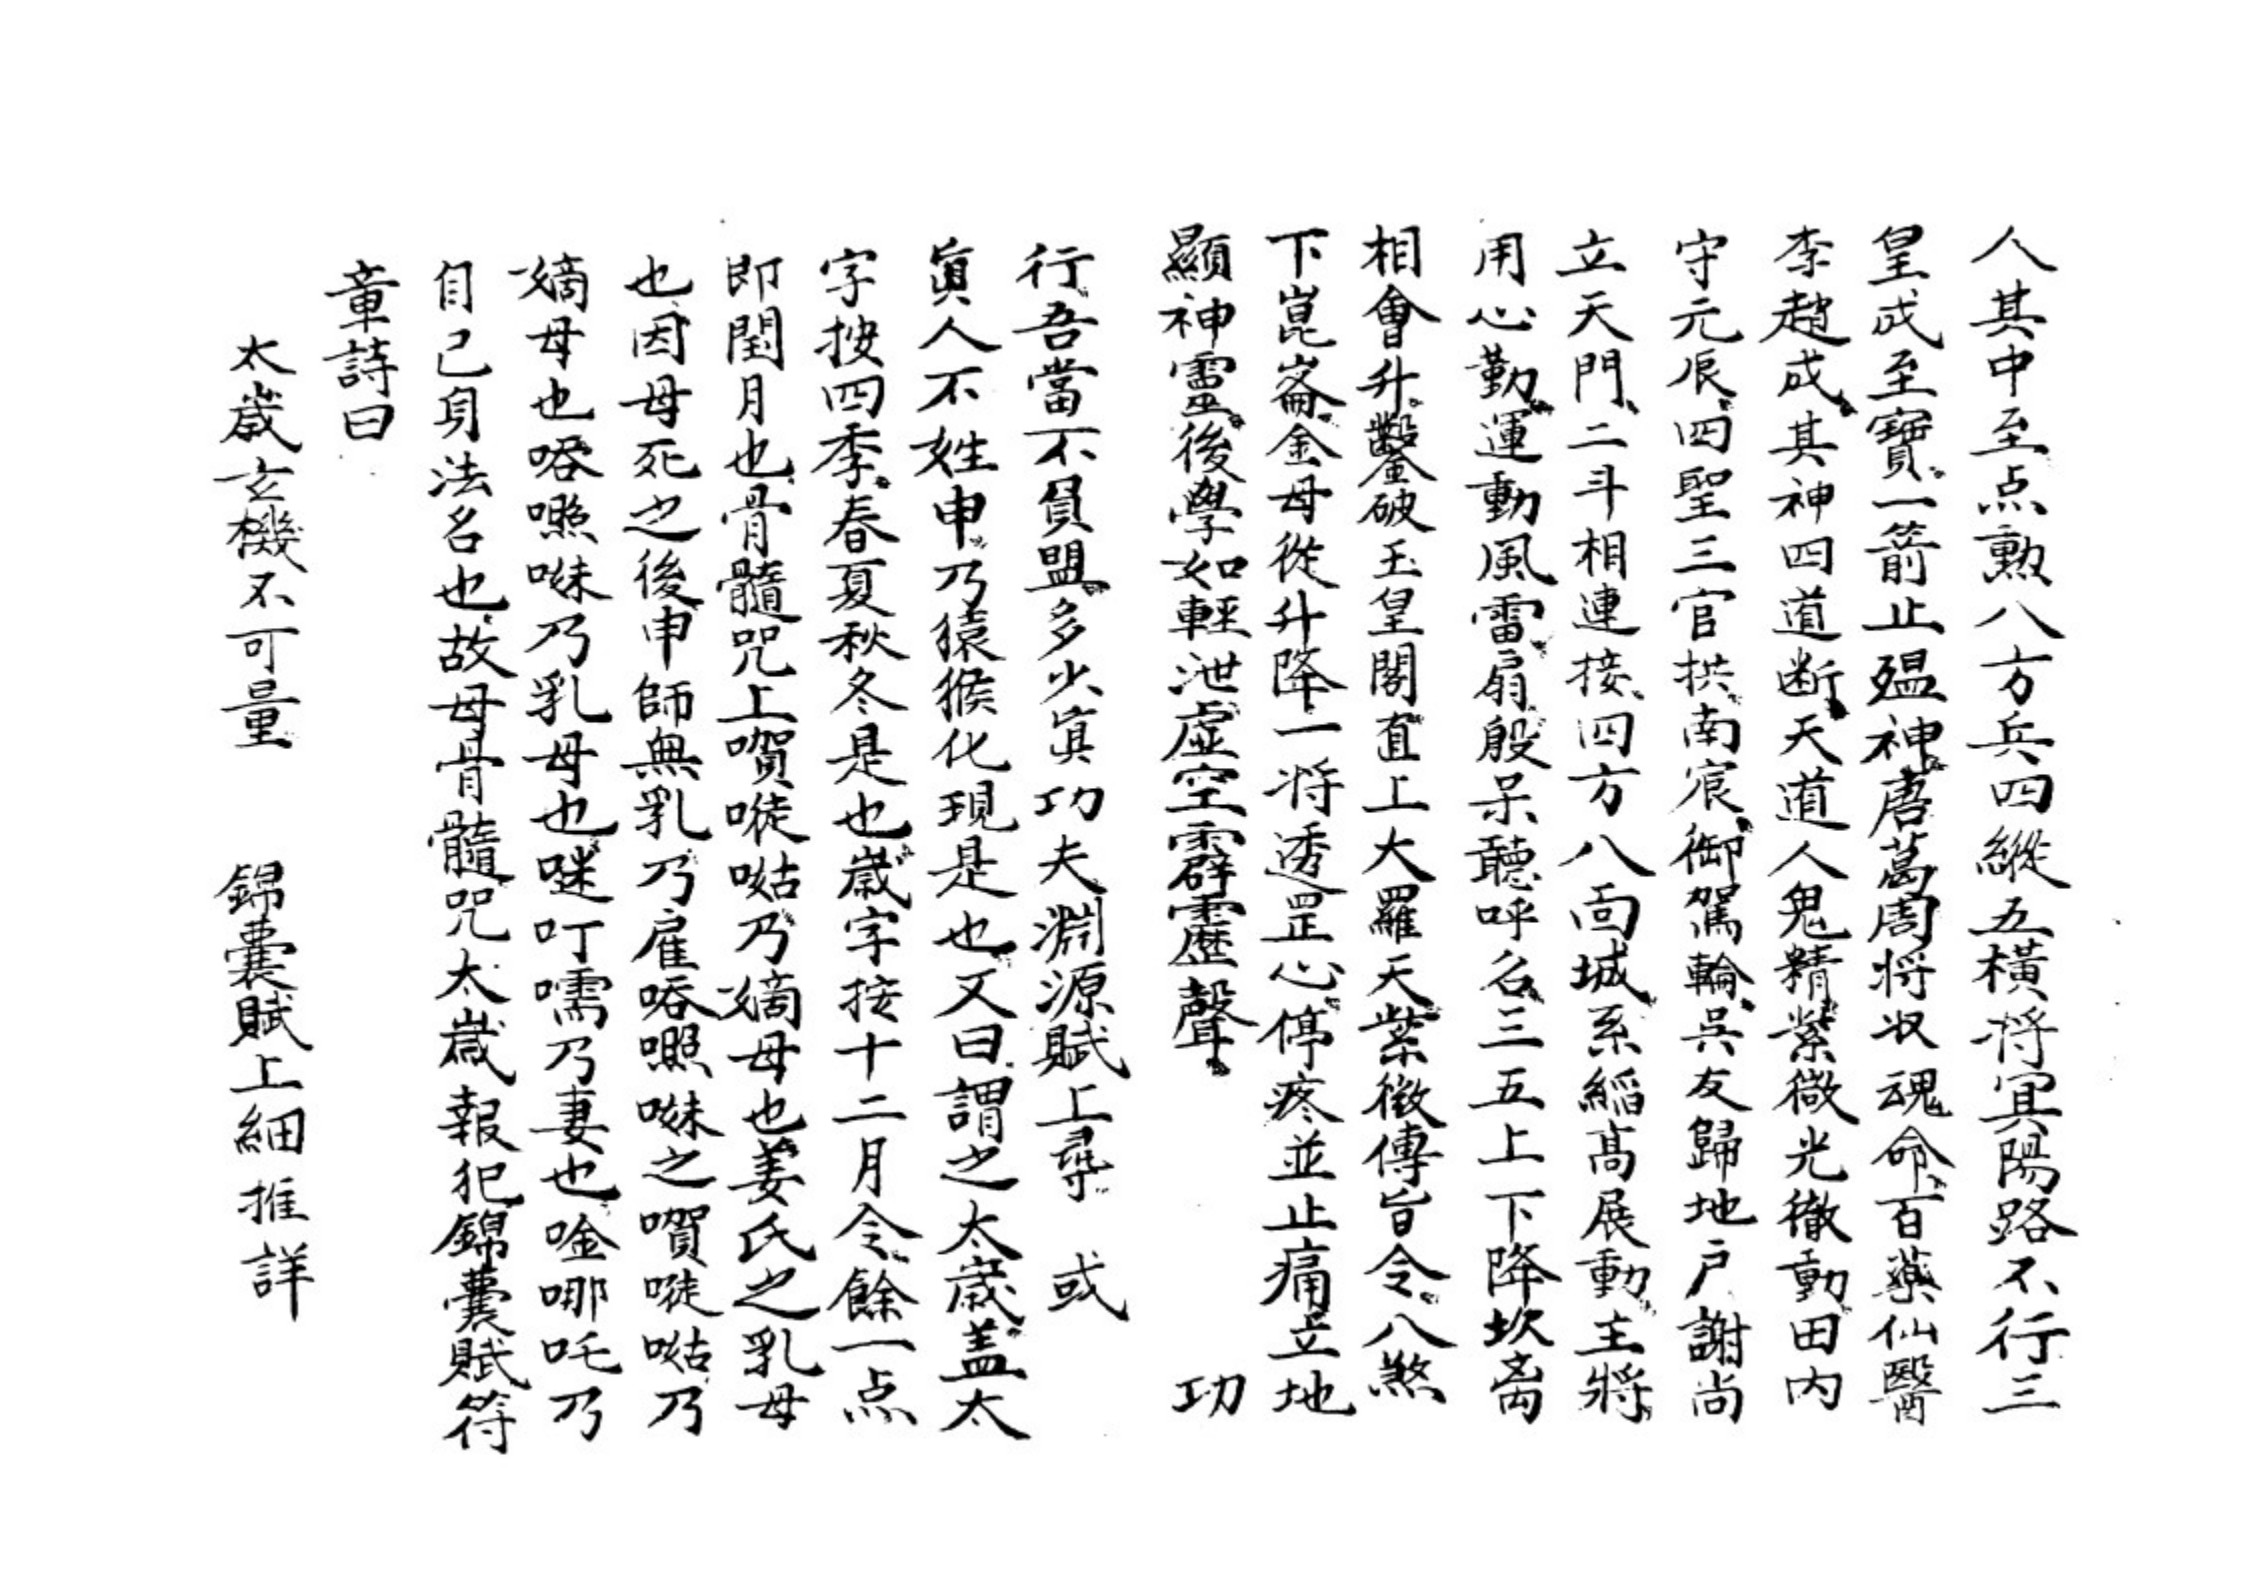 人其中至点勲八方兵四縱五橫将冥陽路不行三
皇成至寶一箭止殟神唐葛周将收魂命百藥仙醫
李趙成其神四道断天道人鬼精紫微光徹動田内
守元辰四聖三官拱南宸御駕輪呉友歸地户謝尚
立天門二斗相連接四方八面城系縚髙展動主將
用心勤運動風雷扇殷呆聽呼名三五上下降坎离
相會升鑿破玉皇關直上大羅天紫微傳旨令八煞
下崑崙金母從升降一将透罡心停疼並止痛立地
顯神靈後學如輕泄虛空霹靂聲 功
行吾當不負盟多少真功夫淵源賦上尋 或
眞人不姓申乃猿猴化現是也又曰謂之太歳盖太
字按四季春夏秋冬是也歲字按十二月令餘一点
即閏月也骨髓咒上嘪嘥𠹳乃嫡母也姜氏之乳母
也因母死之後申師無乳乃雇㖔㬢㗑之嘪嘥𠹳乃
嫡母也㖔㬢㗑乃乳母也㖷叮嚅乃妻也唫哪吒乃
自己身法名也故母骨髓咒太歲報犯錦囊賦符
章詩曰
太歲玄機不可量 錦囊賦上細推詳